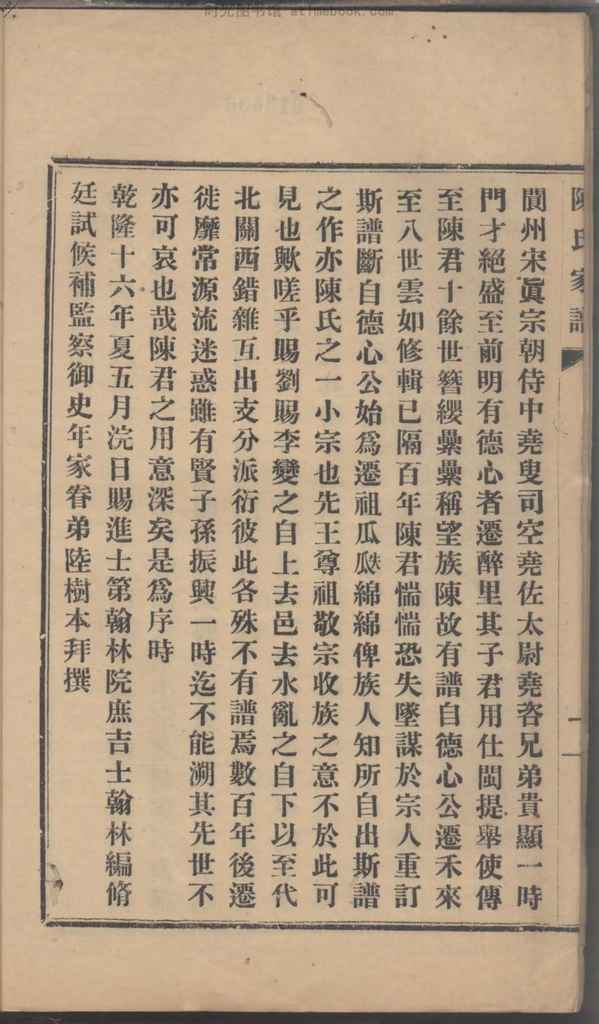 时光图书馆 atimebook.com
陳氏家譜
閬州宋眞宗朝侍中堯叟司空堯佐太尉堯咨兄弟貴顯一時
門才絕盛至前明有德心者遷醉里其子君用仕閩提舉使傳
至陳君十餘世簪纓纍纍稱望族陳故有譜自德心公遷禾來
至八世雲如修輯已隔百年陳君惴惴恐失墜謀於宗人重訂
斯譜斷自德心公始爲遷祖瓜瓞綿綿俾族人知所自出斯譜
之作亦陳氏之一小宗也先王尊祖敬宗收族之意不於此可
見也歟嗟乎賜劉賜李變之自上去邑去水亂之自下以至代
北關西錯雜互出支分派衍彼此各殊不有譜焉數百年後遷
徙靡常源流迷惑雖有賢子孫振興一時迄不能溯其先世不
亦可哀也哉陳君之用意深矣是爲序時
乾隆十六年夏五月浣日賜進士第翰林院庶吉士翰林編脩
廷試候補監察御史年家眷弟陸樹本拜撰